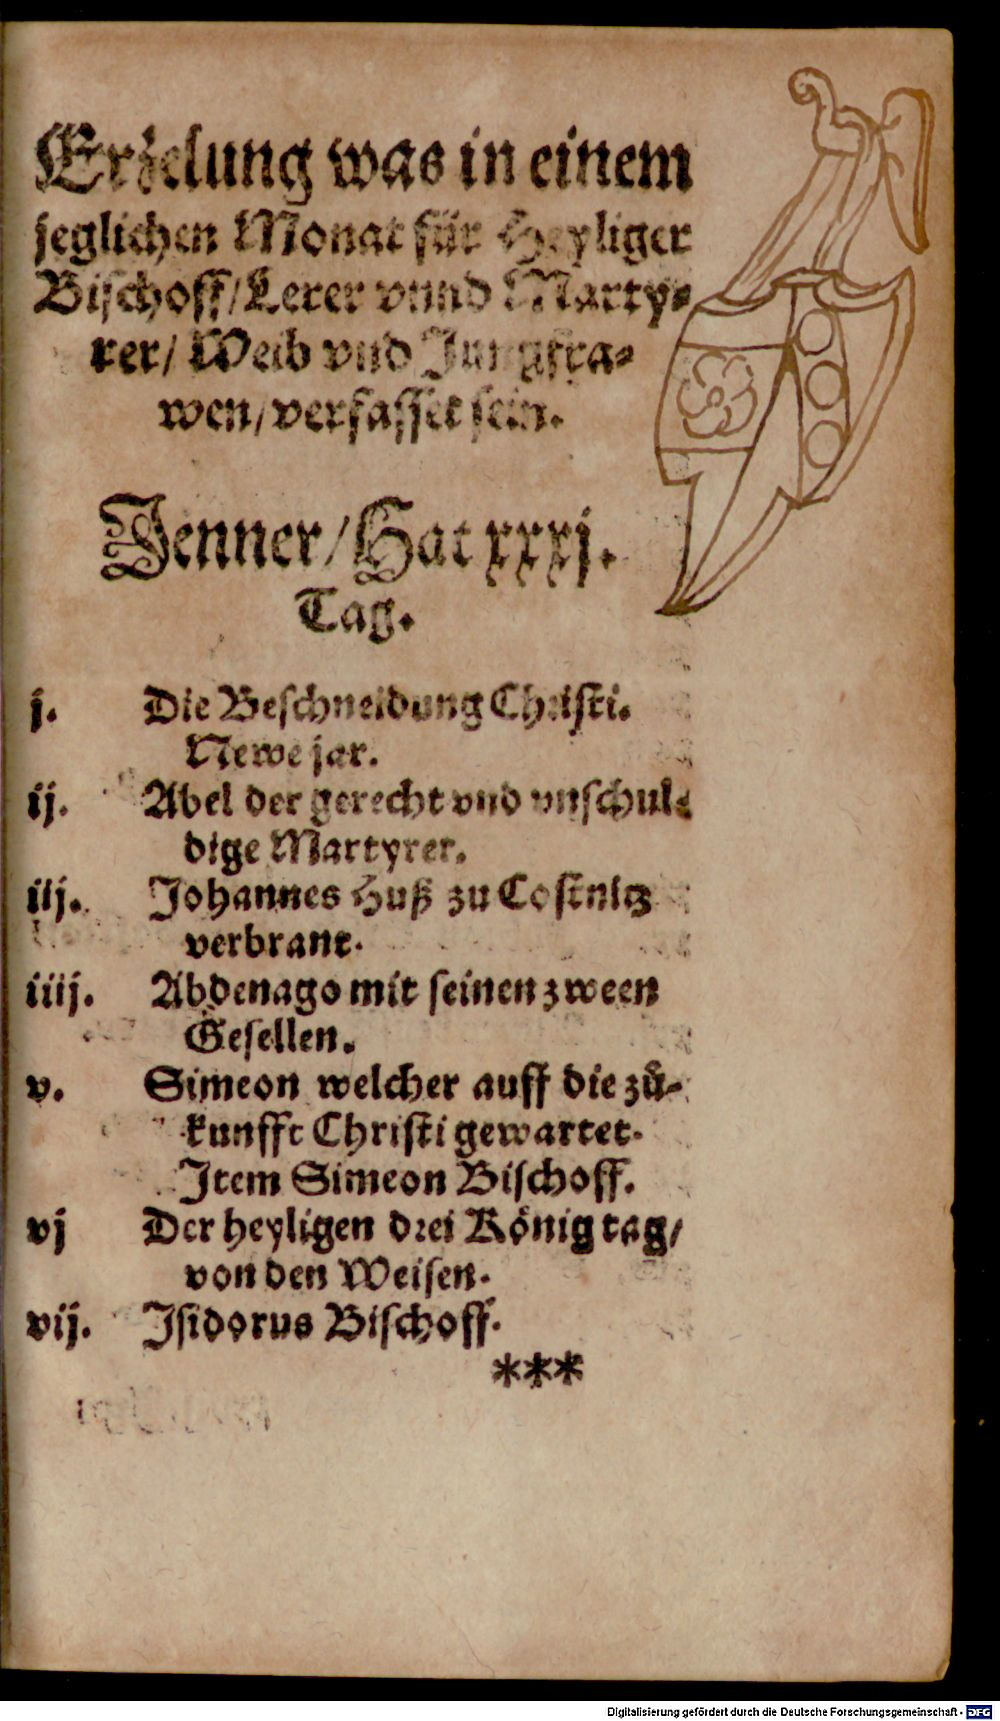 Erzelung was in einem
jeglichen Monat für Heyliger
Bischoff/ Lerer vnnd Marty-
rer/ Weib vnd Jungfra-
wen/ verfasset sein.
Jenner/ Hat xxxj.
Tag.
j. Die Beschneidung Christi.
Newe jar.
ij. Abel der gerecht vnd vnschul-
dige Martyrer.
iij. Johannes Huß zu Costnitz
verbrant.
iiij. Abdenago mit seinen zween
Gesellen.
v. Simeon welcher auff die zů-
kunfft Christi gewartet.
Item Simeon Bischoff.
vj Der heyligen drei König tag/
von den Weisen.
vij. Isidorus Bischoff.
***
Digitalisierung gefördert durch die Deutsche Forschungsgemeinschaft - DFG